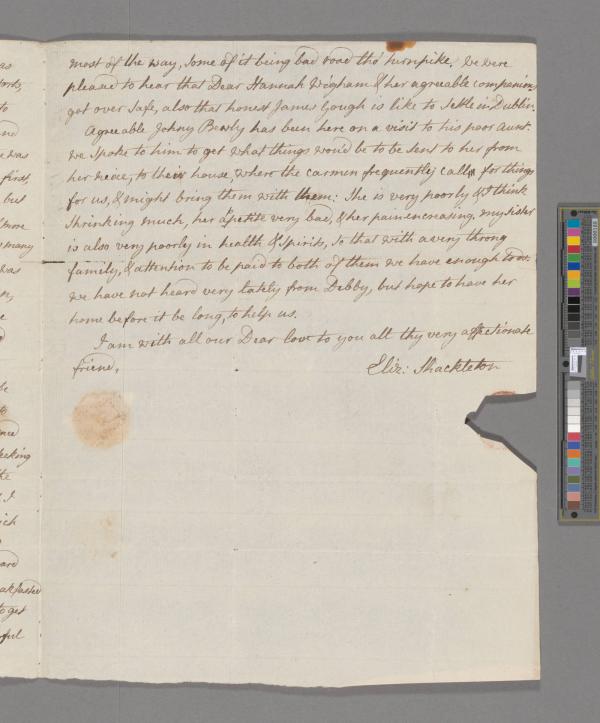 most of the way, some of it being bad road tho' turnpike. we were
pleased to hear that Dear Hannah Wigham & her agreeable companions
got over safe, also that honest James Gough is like to settle in Dublin.
Agreeable Johny Bewly has been here on a visit to his poor aunt.
we spoke to him to get what things wou'd be to be sent to her from
her neice, to their house, where the carmen frequently call for things
for us, & might bring them with them: She is very poorly & I think
shrinking much, her apetite very bad, & her pain encreasing. my sister
is also very poorly in health & spirits, so that with a very throng
family, & attention to be paid to both of them we have enough to do.
we have not heard very lately from Debby, but hope to have her
home before it be long, to help us.
I am with all our Dear love to you all thy very affectionate
friend,
Eliz: Shackleton
as
to
and
was
first
but
more
many
was
be
nce
seeking
the
I
ich
ard
eakfasted
to get
ful